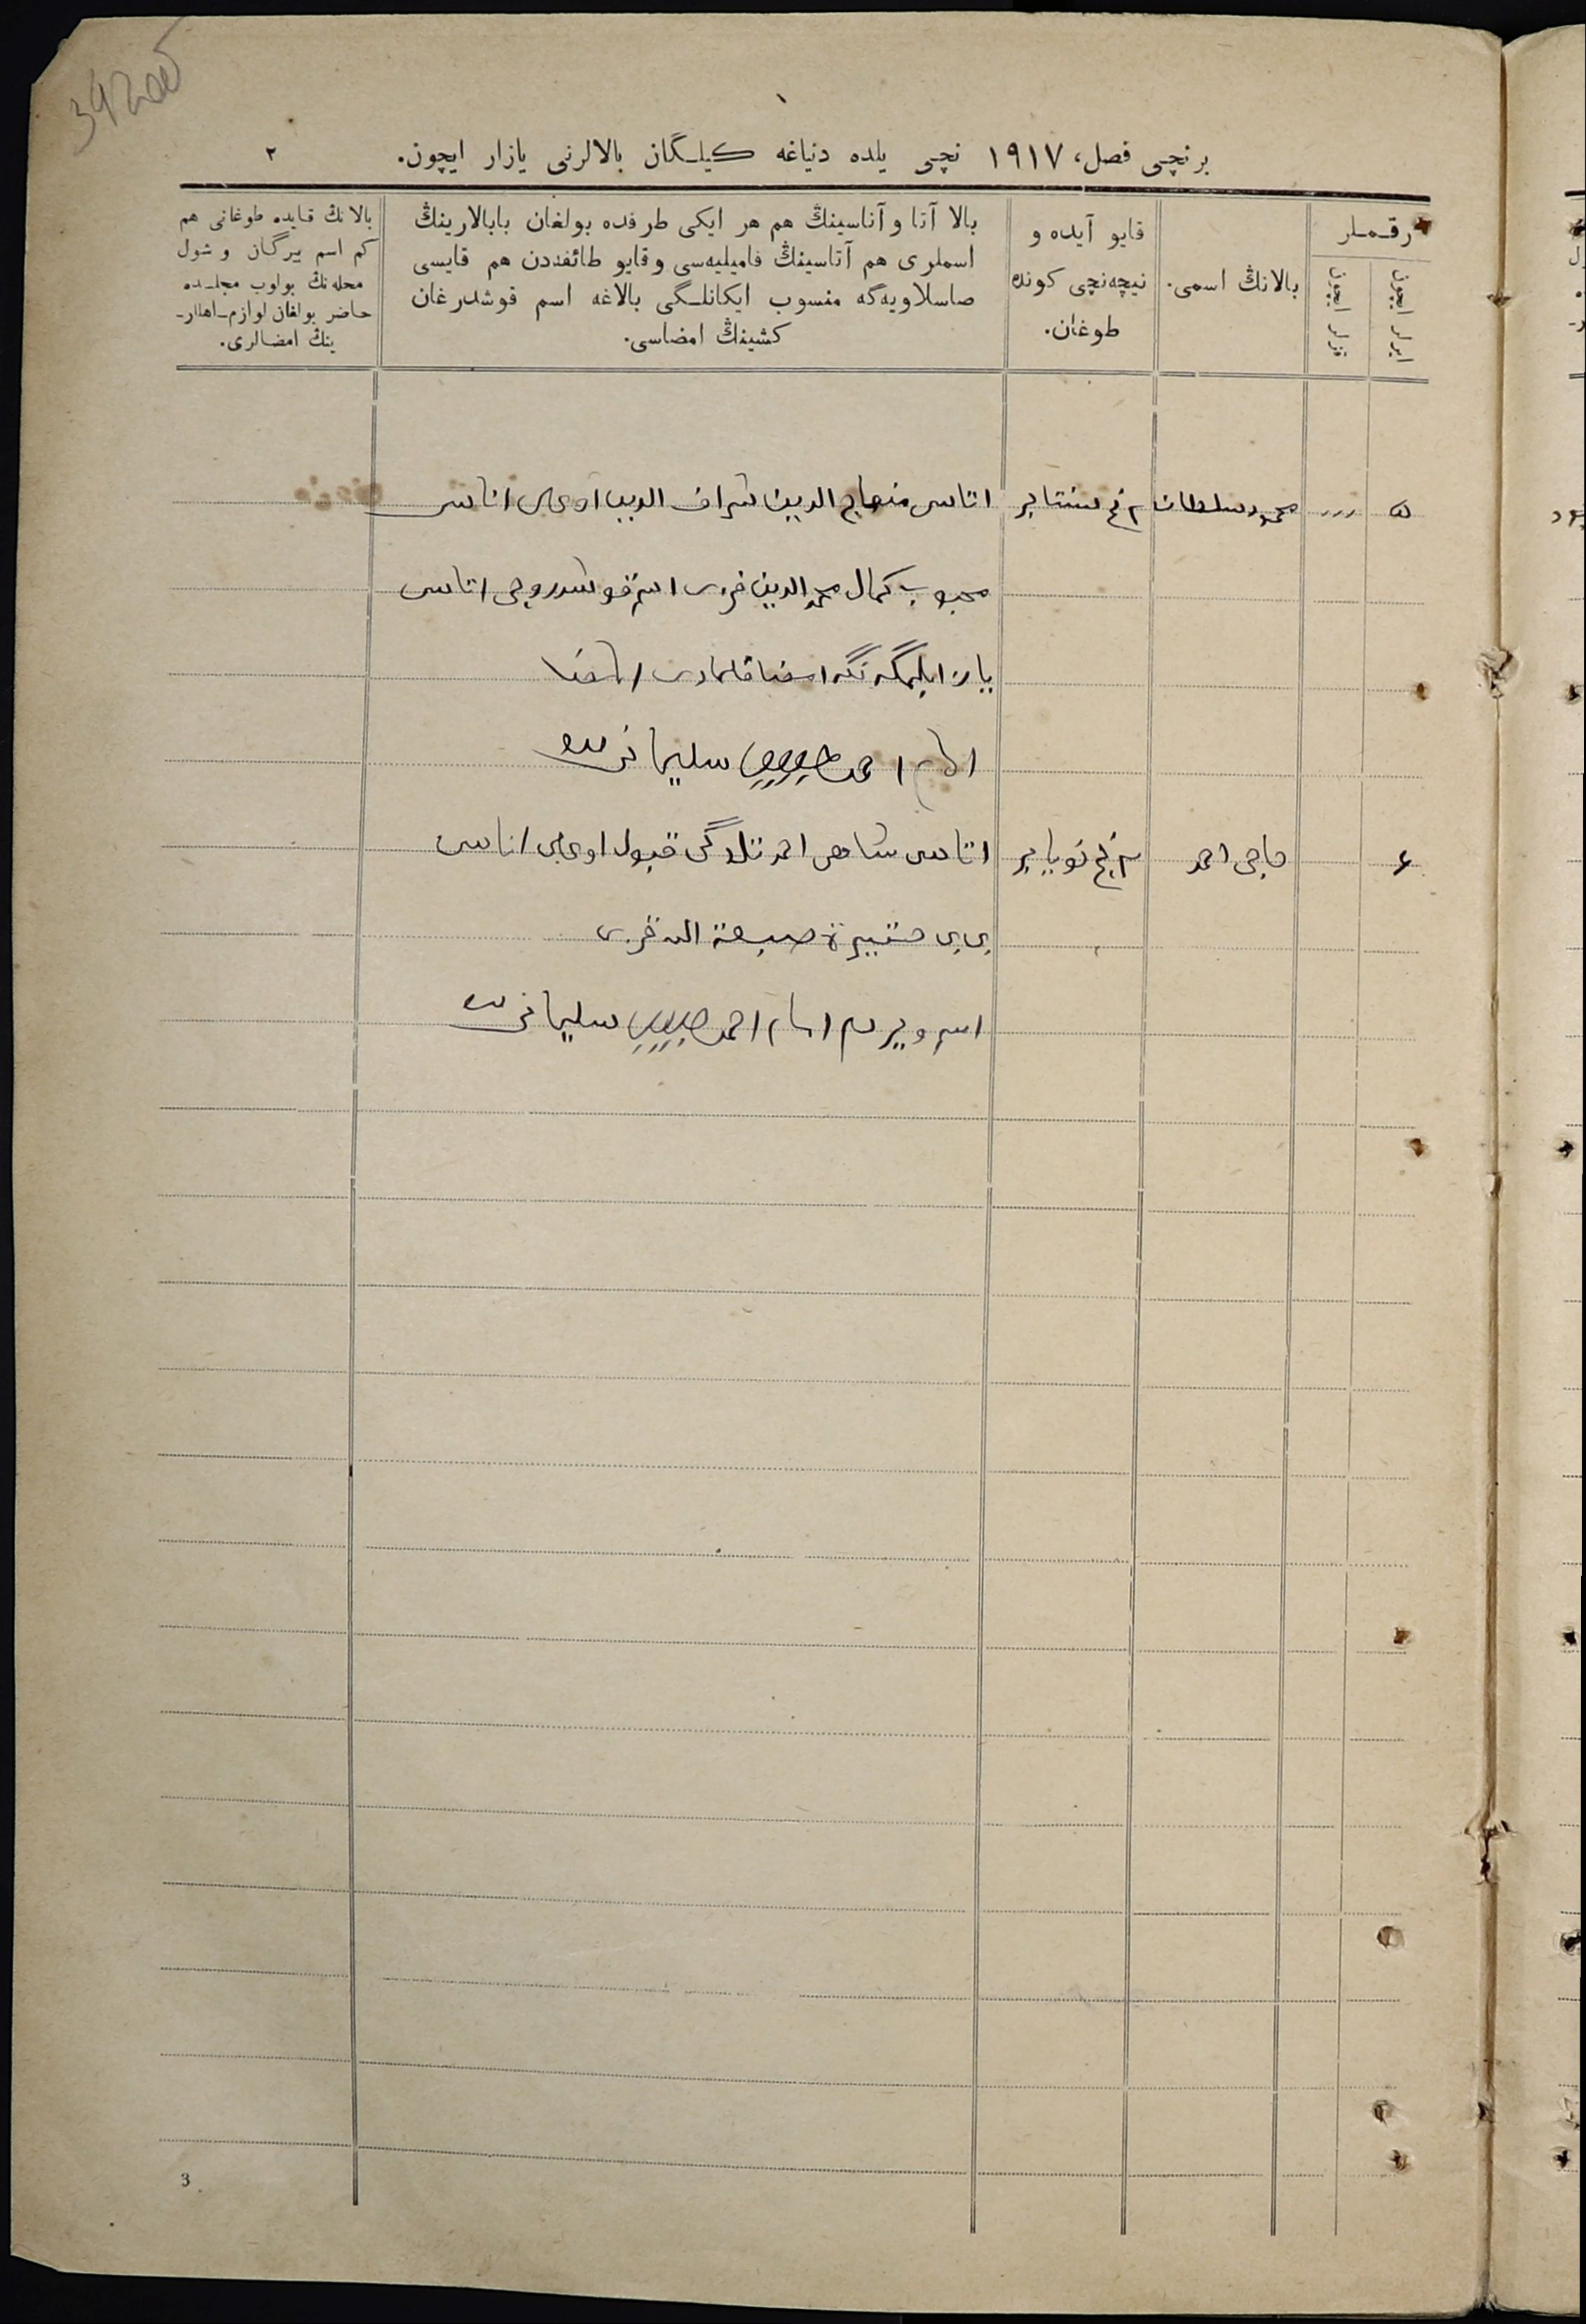 برنچی فصل، ١٩١٧ نچی یلده دنیاغه کیلگان بالالرنی یازار ایچون.
٢
رقملر
ایرلر ایچون
قزلر ایچون
بالانڭ اسمی.
قایو آیده و
نیچه‌نچی کونده
طوغان.
بالا آتا و آناسینڭ هم هر ایکی طرفده بولغان بابالارینڭ
اسملری هم آتاسینڭ فامیلیه‌سی وقایو طائفه‌دن هم قایسی
صاسلاویه‌گه منسوب ایکانلگی بالاغه اسم قوشدرغان
کشینڭ امضاسی.
بالانڭ قایده طوغانی هم
کم اسم بیرگان و شول
محله‌نڭ بولوب مجلسده
حاضر بولغان لوازم‌ـ‌اهللرـ
ینڭ امضالری.
۵ محمد سلطان ٢ نچی سنتابر اتاسی منهاج الدین شراف الدین اوغلی اناسی
محبوب کمال محمد الدین قزی اسم قوشدروچی اتاسی
یازا بلمگه‌نگه امضا قلمادی
امام احمد سلیمانی
۶ حاجی احمد ٣ نچی نویابر اتاسی شاه احمد تلدگی قبول اوغلی اناسی
بی بی صبغة الله قزی
اسم ویردم امام احمد سلیمانی
3